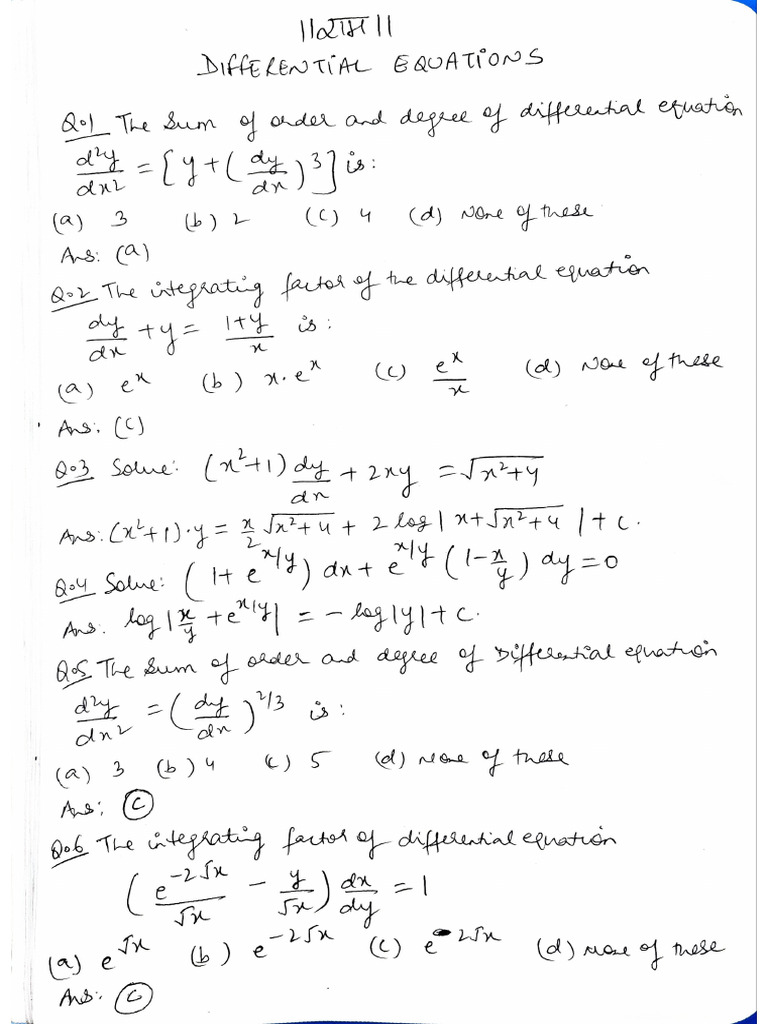 ॥राम॥
DIFFERENTIAL EQUATIONS
Q.1 The Sum of order and degree of differential equation
d²y/dx² = [y + (dy/dx)³] is:
(a) 3 (b) 2 (c) 4 (d) None of these
Ans: (a)
Q.2 The integrating factor of the differential equation
dy/dx + y = (1+y)/x is:
(a) eˣ (b) x·eˣ (c) eˣ/x (d) None of these
Ans: (c)
Q.3 Solve: (x²+1) dy/dx + 2xy = √(x²+4)
Ans: (x²+1)·y = x/2 √(x²+4) + 2 log|x+√(x²+4)| + c.
Q.4 Solve: (1+e^(x/y)) dx + e^(x/y) (1-x/y) dy = 0
Ans. log|x/y + e^(x/y)| = -log|y| + c.
Q.5 The Sum of order and degree of Differential equation
d²y/dx² = (dy/dx)^(2/3) is:
(a) 3 (b) 4 (c) 5 (d) None of these
Ans: (c)
Q.6 The integrating factor of differential equation
(e^(-2√x)/√x - y/√x) dx/dy = 1
(a) e^(√x) (b) e^(-2√x) (c) e^(2√x) (d) None of these
Ans: (c)